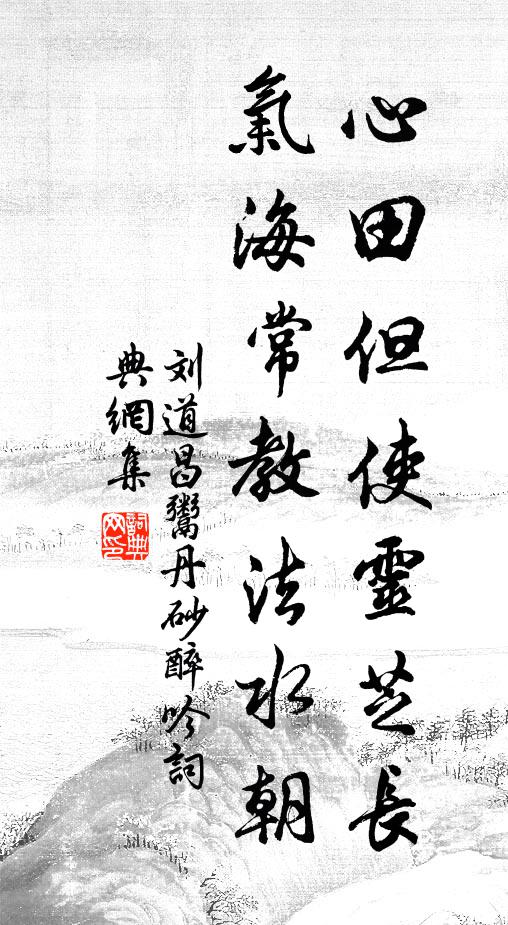 心田但使靈芝長
氣海常教法水朝
刘道昌鬻丹砂醉吟詞
典網集
詞典
网印